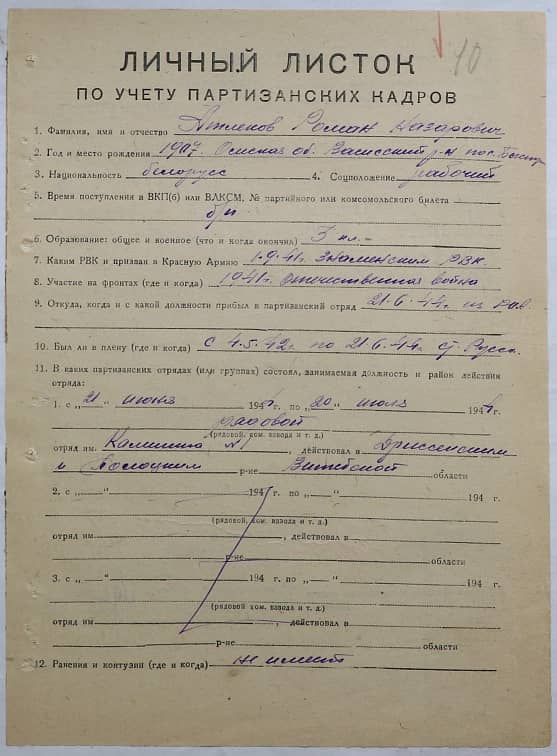 10
ЛИЧНЫЙ ЛИСТОК
ПО УЧЕТУ ПАРТИЗАНСКИХ КАДРОВ
1. Фамилия, имя и отчество Роман Назарович
2. Год и место рождения 1907. Омская об. р-н пос.
3. Национальность белорусс 4. Соцположение рабочий
5. Время поступления в ВКП(б) или ВЛКСМ, № партийного или комсомольского билета
б/п
6. Образование: общее и военное (что и когда окончил) 3 кл.-
7. Каким РВК и призван в Красную Армию 1-9-41г. Знаменским РВК.
8. Участие на фронтах (где и когда) 1941г. отечественная война
9. Откуда, когда и с какой должности прибыл в партизанский отряд 21.6.44г. из
10. Был ли в плену (где и когда) с 4.5.42г. по 21.6.44г. ст. Русса.
11. В каких партизанских отрядах (или группах) состоял, занимаемая должность и район действия
отряда:
1. с „21“ июня 1944г. по „20“ июля 1944 г.
рядовой
(рядовой, ком. взвода и т. д.)
отряд им. Калинина №1, действовал в Дриссенским
и Полоцким р-не Витебской области
2. с „—“ 194 г. по „—“ 194 г.
(рядовой, ком. взвода и т. д.)
отряд им, действовал в
р-не области
3. с „—“ 194 г. по „—“ 194 г.
(рядовой ком. взвода и т. д.)
отряд им, действовал в
р-не области
12. Ранения и контузии (где и когда) не имеет